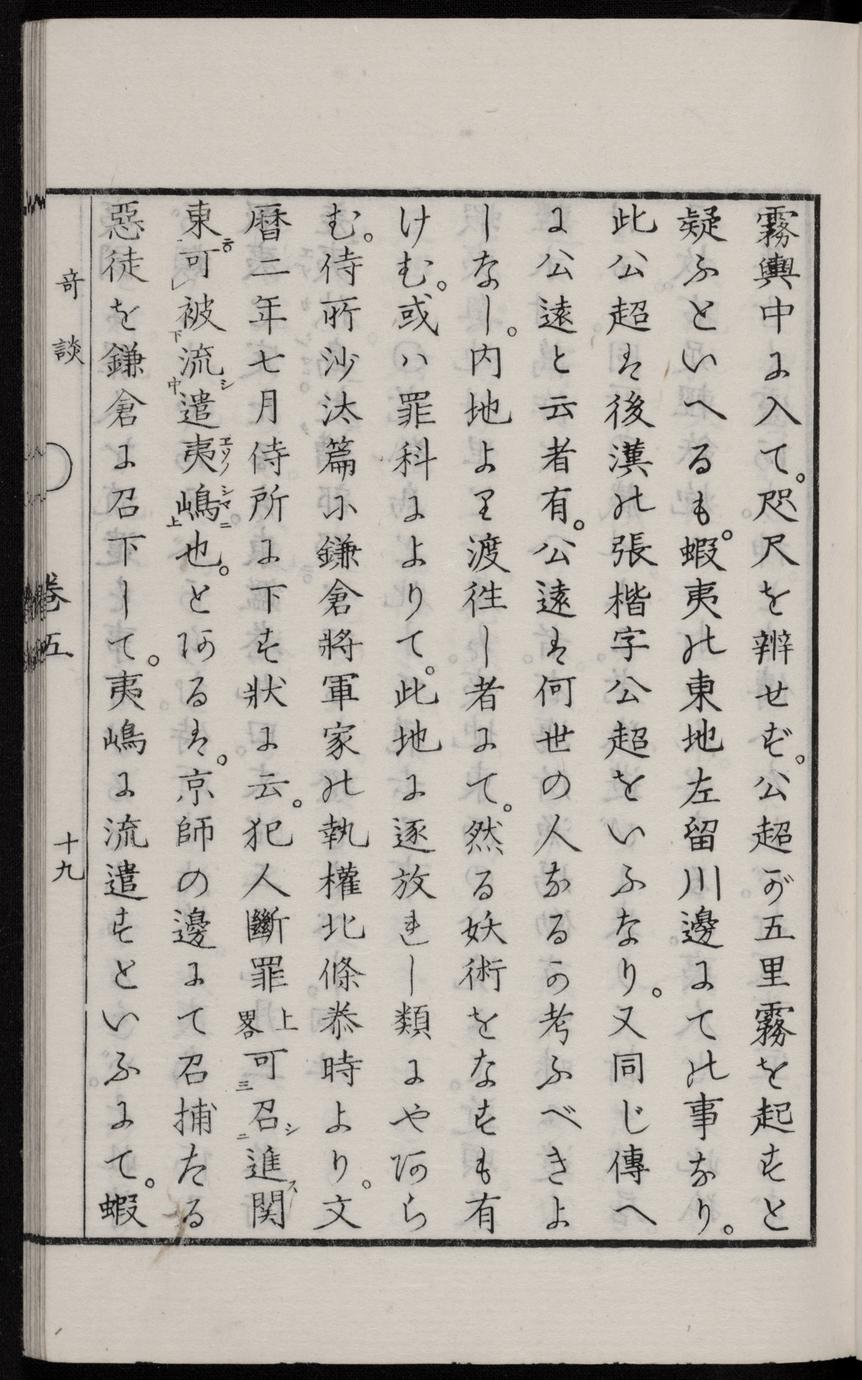 霧輿中に入て。咫尺を辨せず。公超が五里霧を起すと
疑ふといへるも。蝦夷の東地左留川邊にての事なり。
此公超は後漢の張楷字公超をいふなり。又同じ傳へ
に公遠と云者有。公遠は何世の人なるか考ふべきよ
しなし。内地より渡徃し者にて。然る妖術をなすも有
けむ。或ハ罪科によりて。此地に逐放れし類にやあら
む。侍所沙汰篇に鎌倉將軍家の執權北條泰時より。文
曆二年七月侍所に下す狀に云。犯人斷罪上畧可三召シ二進ス関
東ヲ一可レ被下流シ中遣夷エゾノ嶋シマニ上也。とあるは。京師の邊にて召捕たる
惡徒を鎌倉に召下して。夷嶋に流遣すといふにて。蝦
奇談
卷五
十九